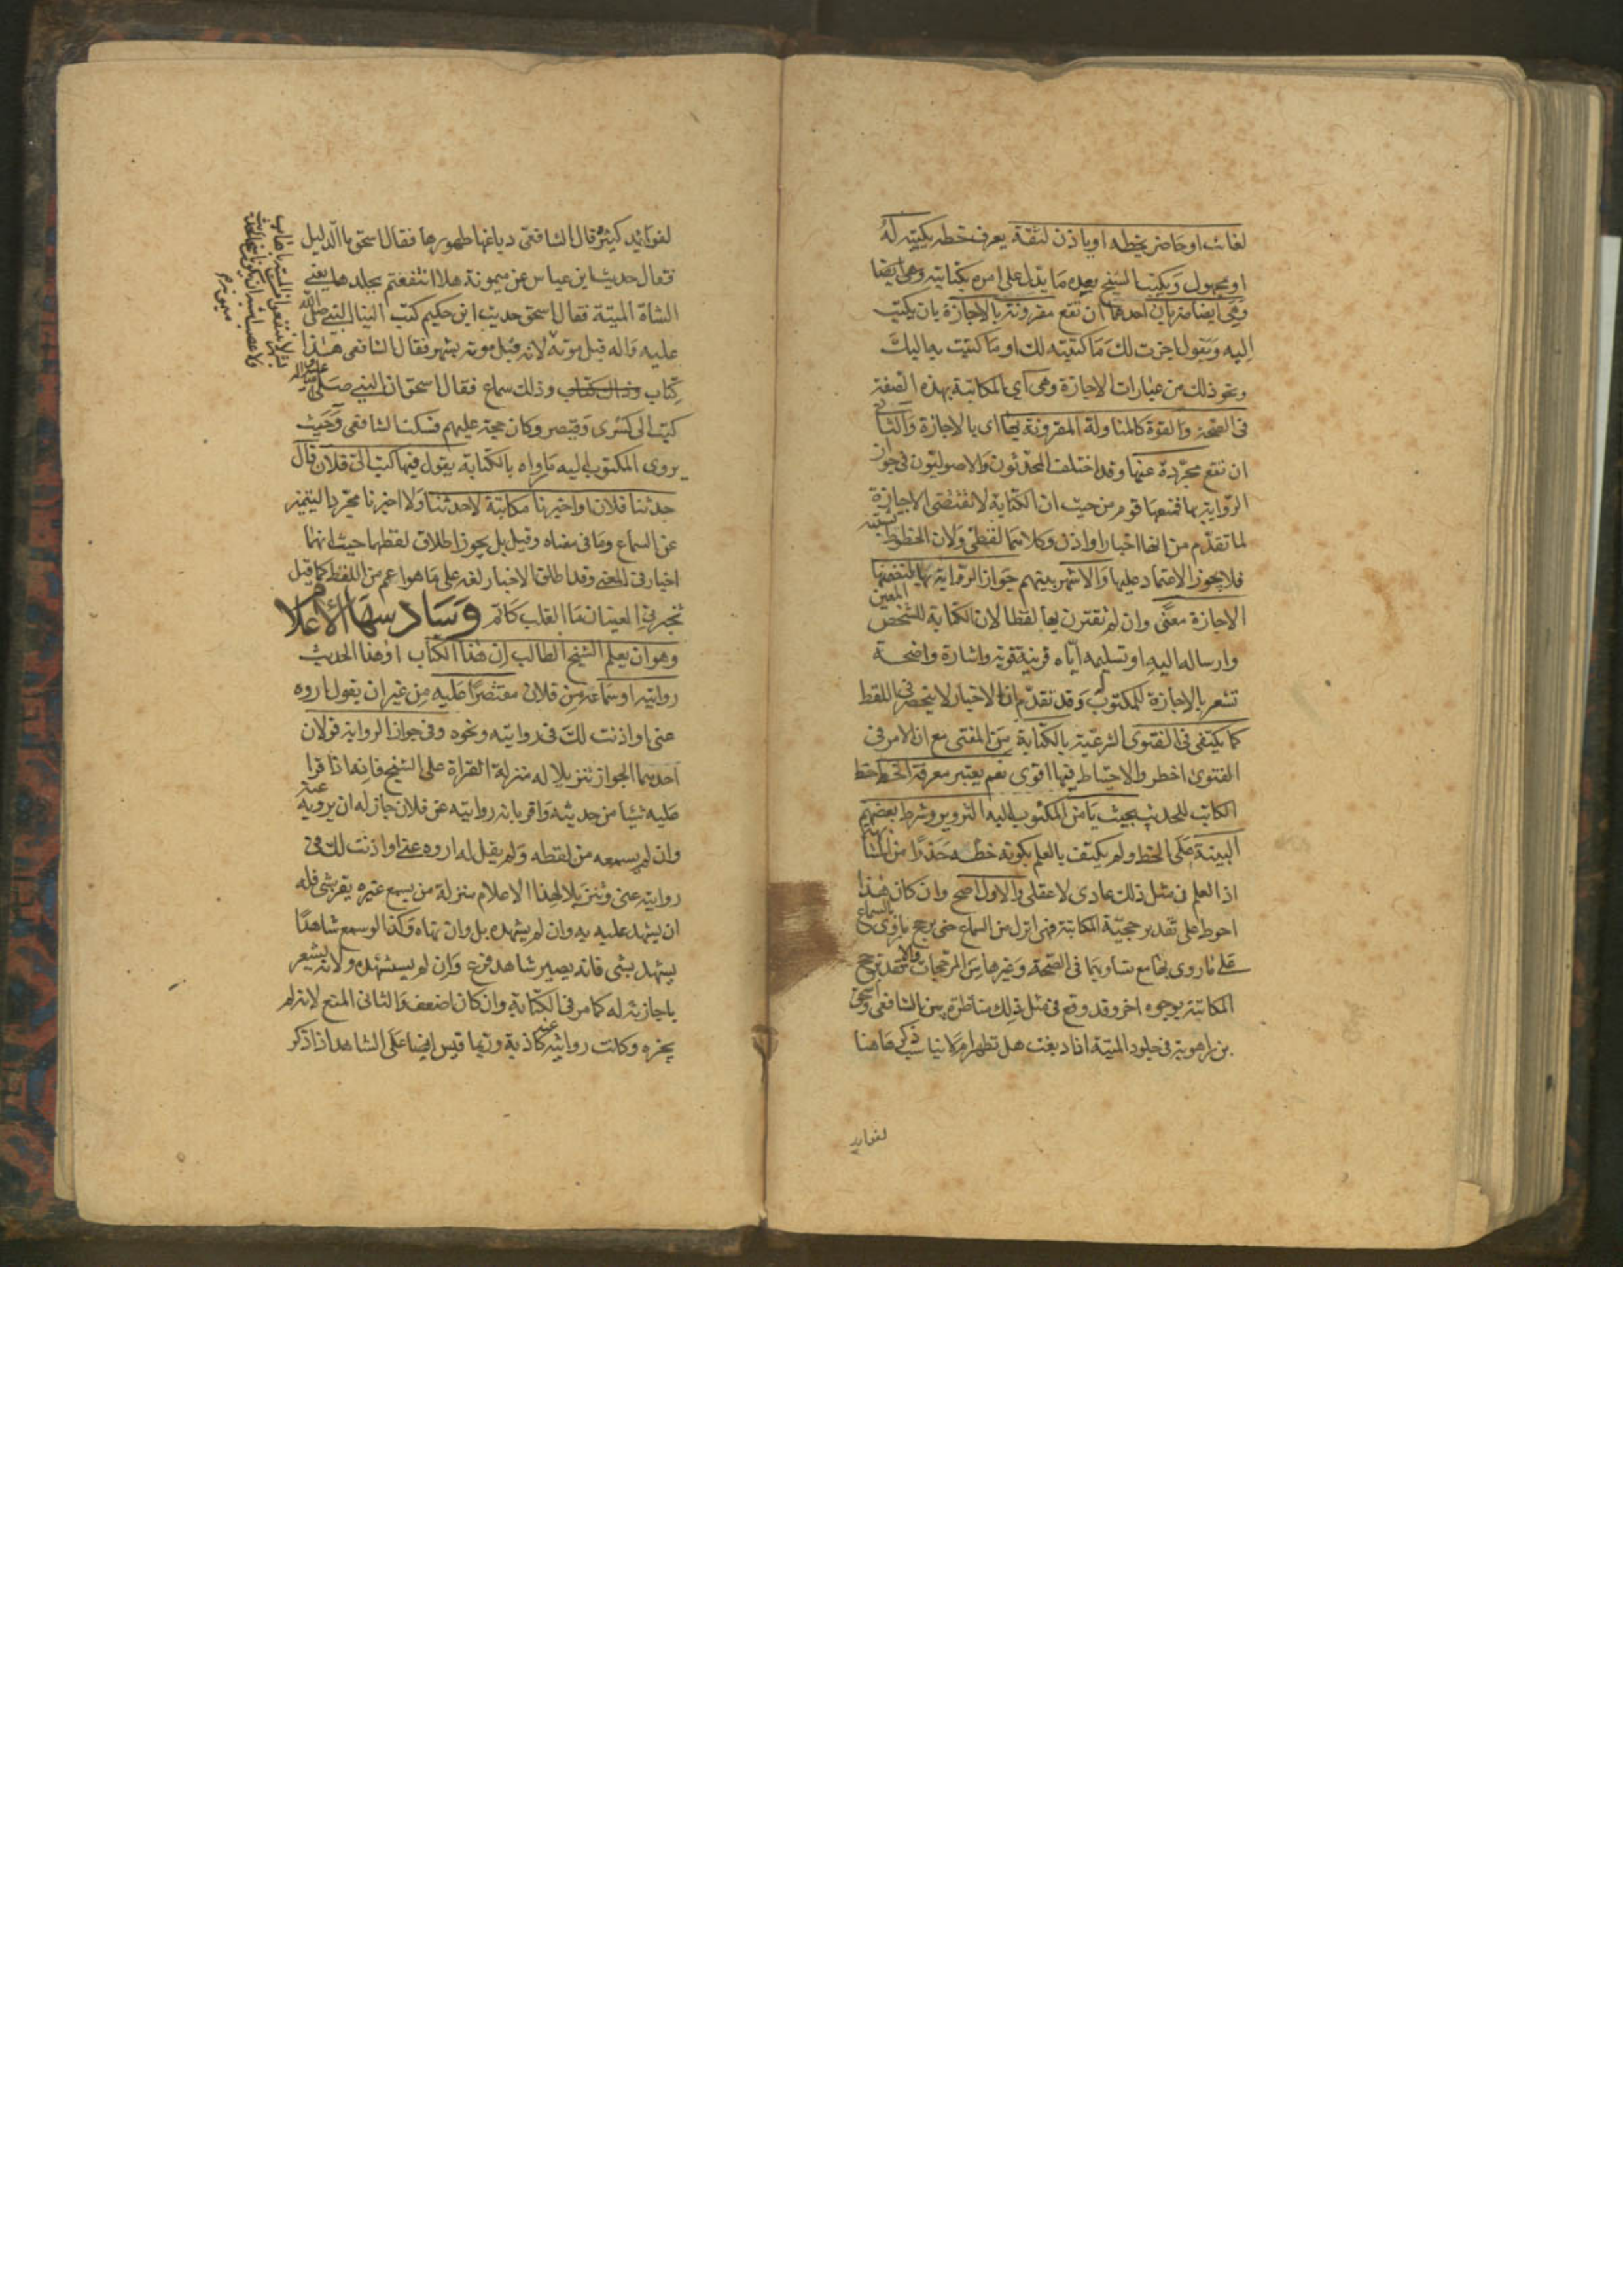 لغائب او حاضر بخطه او ياذن لثقة يعرف خطه بكتبه له
او مجهول ويكتب الشيخ بعده ما يدل على امره بكتابته وهي ايضا
وهي ايضا ضربان احدهما ان تقع مقرونة بالاجازة بان يكتب
اليه ويقول اجزت لك ما كتبته لك او ما كتبت به اليك
ونحو ذلك من عبارات الاجازة وهي اي المكاتبة بهذه الصفة
في الصحة والقوة كالمناولة المقرونة بها اي بالاجازة والثاني
ان تقع مجردة عنها وقد اختلف المحدثون والاصوليون في جواز
الرواية بها فمنعها قوم من حيث ان الكتابة لا تقتضي الاجازة
لما تقدم من انها اخبار او اذن وكلاهما لفظي ولان الخطوط تشتبه
فلا يجوز الاعتماد عليها والاشهر بينهم جواز الرواية بها لتضمنها
الاجازة معنى وان لم تقترن بها لفظا لان الكتابة للشخص المعين
وارساله اليه او تسليمه اياه قرينة قوية واشارة واضحة
تشعر بالاجازة للمكتوب وقد تقدم ان الاخبار لا ينحصر في اللفظ
كما يكتفى في الفتوى الشرعية بالكتابة من المفتي مع ان الامر في
الفتوى اخطر والاحتياط فيها اقوى نعم يعتبر معرفة الخط خط
الكاتب للحديث بحيث يأمن المكتوب اليه التزوير وشرط بعضهم
البينة على الخط ولم يكتف بالعلم بكونه خطه حذرا من المشابهة
اذ العلم في مثل ذلك عادي لا عقلي والاول اصح وان كان هذا
احوط على تقدير حجية المكاتبة فهي انزل من السماع حتى يرجح ما روي بالسماع
على ما روي بها مع تساويهما في الصحة وغيرها من المرجحات والا فقد ترجح
المكاتبة بوجوه اخر وقد وقع في مثل ذلك مناظرة بين الشافعي واسحق
بن راهويه في جلود الميتة اذا دبغت هل تطهر ام لا يناسب ذكرها هنا
لفوايد
لفوائد كثيرة قال الشافعي دباغها طهورها فقال اسحق ما الدليل
فقال حديث ابن عباس عن ميمونة هلا انتفعتم بجلدها يعني
الشاة الميتة فقال اسحق حديث ابن حكيم كتب الينا النبي صلى الله
عليه واله قبل موته لانه قبل موته بشهر فقال الشافعي هذا
كتاب وذاك كتاب وذلك سماع فقال اسحق ان النبي صلى الله عليه واله
كتب الى كسرى وقيصر وكان حجة عليهم فسكت الشافعي وحيث
يروى المكتوب اليه ما رواه بالكتابة يقول فيها كتب الي فلان قال
حدثنا فلان او اخبرنا مكاتبة لا حدثنا ولا اخبرنا مجردا ليتميز
عن السماع وما في معناه وقيل بل يجوز اطلاق لفظهما حيث انهما
اخبار في المعنى وقد اطلق الاخبار لغة على ما هو اعم من اللفظ كما قيل
تخبرني العينان ما القلب كاتم وسادسها الاعلام
وهو ان يعلم الشيخ الطالب ان هذا الكتاب او هذا الحديث
روايته او سماعه من فلان مقتصرا عليه من غير ان يقول اروه
عني او اذنت لك في روايته ونحوه وفي جواز الرواية قولان
احدهما الجواز تنزيلا له منزلة القراة على الشيخ فانه اذا قرا
عليه شيئا من حديثه واقر بانه روايته عن فلان جاز له ان يرويه عنه
وان لم يسمعه من لفظه ولم يقل له اروه عني او اذنت لك في
روايته عني وتنزيلا لهذا الاعلام منزلة من يسمع غيره يقر بشي فله
ان يشهد عليه به وان لم يشهده بل وان نهاه وكذا لو سمع شاهدا
يشهد بشي فانه يصير شاهد فرع وان لم يستشهده ولانه يشعر
باجازته له كما مر في الكتابة وان كان اضعف والثاني المنع لانه لم
يجزه وكانت روايته عنه كاذبة وربما قيس ايضا على الشاهد اذا ذكر
لا تنتفعوا من الميتة باهاب
ولا عصب